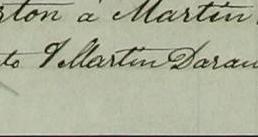 rton á Martin
to Martin Darau